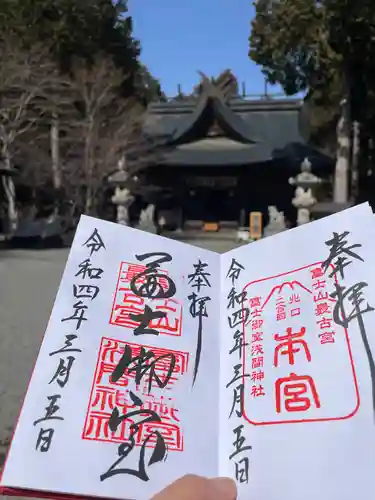 奉拝
富士山最古宮
北口
二合目
本宮
富士御室浅間神社
令和四年三月五日
奉拝
冨士御室
令和四年三月五日